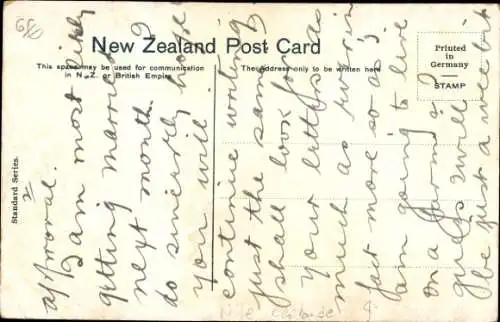 680
New Zealand Post Card
This space may be used for communication
in N.Z. or British Empire.
The Address only to be written here
Printed in
Germany
STAMP
Standard Series.
approval.
I am most likely
getting married
next month. I
do sincerely hope
you will
continue writing
just the same I
shall look for
your letters as
much as ever in
fact more so as I
am going to live
on a farm. I
guess will
be just a wee bit